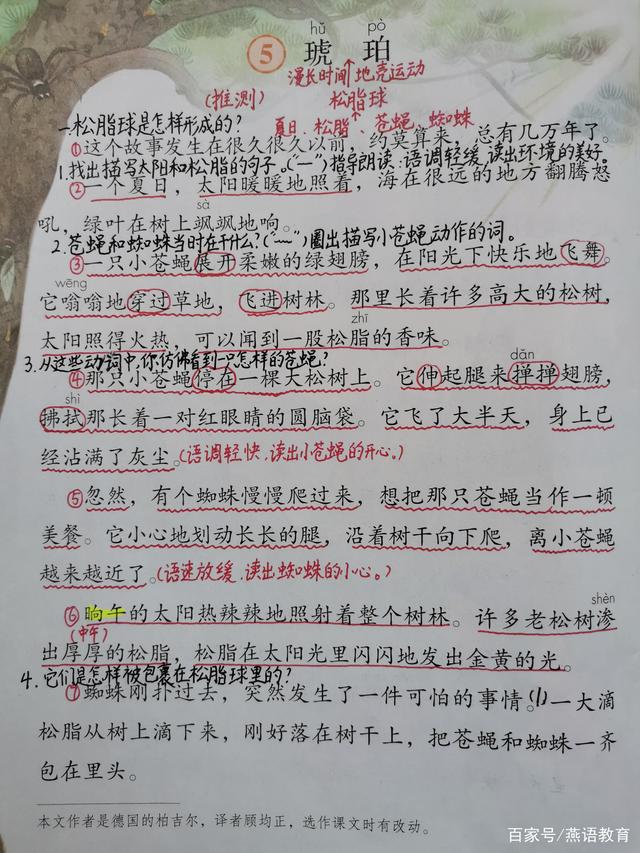 hǔ pò
⑤ 琥珀
漫长时间↑地壳运动
(推测) 松脂球
一.松脂球是怎样形成的? 夏日、松脂↑、苍蝇、蜘蛛
①这个故事发生在很久很久以前,约莫算来,总有几万年了。
1.找出描写太阳和松脂的句子。("—")指导朗读:语调轻缓,读出环境的美好。
②一个夏日,太阳暖暖地照着,海在很远的地方翻腾怒
sà
吼,绿叶在树上飒飒地响。
2.苍蝇和蜘蛛当时在干什么?("﹏")圈出描写小苍蝇动作的词。
③一只小苍蝇展开柔嫩的绿翅膀,在阳光下快乐地飞舞。
wēng
它嗡嗡地穿过草地,飞进树林。那里长着许多高大的松树,
zhī
太阳照得火热,可以闻到一股松脂的香味。
3.从这些动词中,你仿佛看到一只怎样的苍蝇?
dǎn
④那只小苍蝇停在一棵大松树上。它伸起腿来掸掸翅膀,
shì
拂拭那长着一对红眼睛的圆脑袋。它飞了大半天,身上已
经沾满了灰尘。(语调轻快,读出小苍蝇的开心。)
⑤忽然,有个蜘蛛慢慢爬过来,想把那只苍蝇当作一顿
美餐。它小心地划动长长的腿,沿着树干向下爬,离小苍蝇
越来越近了。(语速放缓,读出蜘蛛的小心。)
⑥晌午的太阳热辣辣地照射着整个树林。许多老松树渗
(中午) shèn
出厚厚的松脂,松脂在太阳光里闪闪地发出金黄的光。
4.它们是怎样被包裹在松脂球里的?
⑦蜘蛛刚扑过去,突然发生了一件可怕的事情。(1)一大滴
松脂从树上滴下来,刚好落在树干上,把苍蝇和蜘蛛一齐
包在里头。
本文作者是德国的柏吉尔,译者顾均正,选作课文时有改动。
百家号/燕语教育